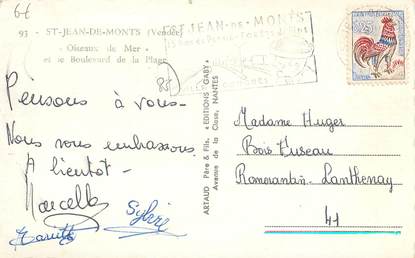 66
93 - ST-JEAN-DE-MONTS (Vendée)
« Oiseaux de Mer »
et le Boulevard de la Plage
ST-JEAN-DE-MONTS
85
Pensons à vous -
Nous vous embrassons
A bientôt -
Marcelle
Sylvie
ARTAUD Père & Fils, « EDITIONS GABY »
Avenue de la Close, NANTES
Madame Huger
Bois Fuseau
Romorantin - Lanthenay
41